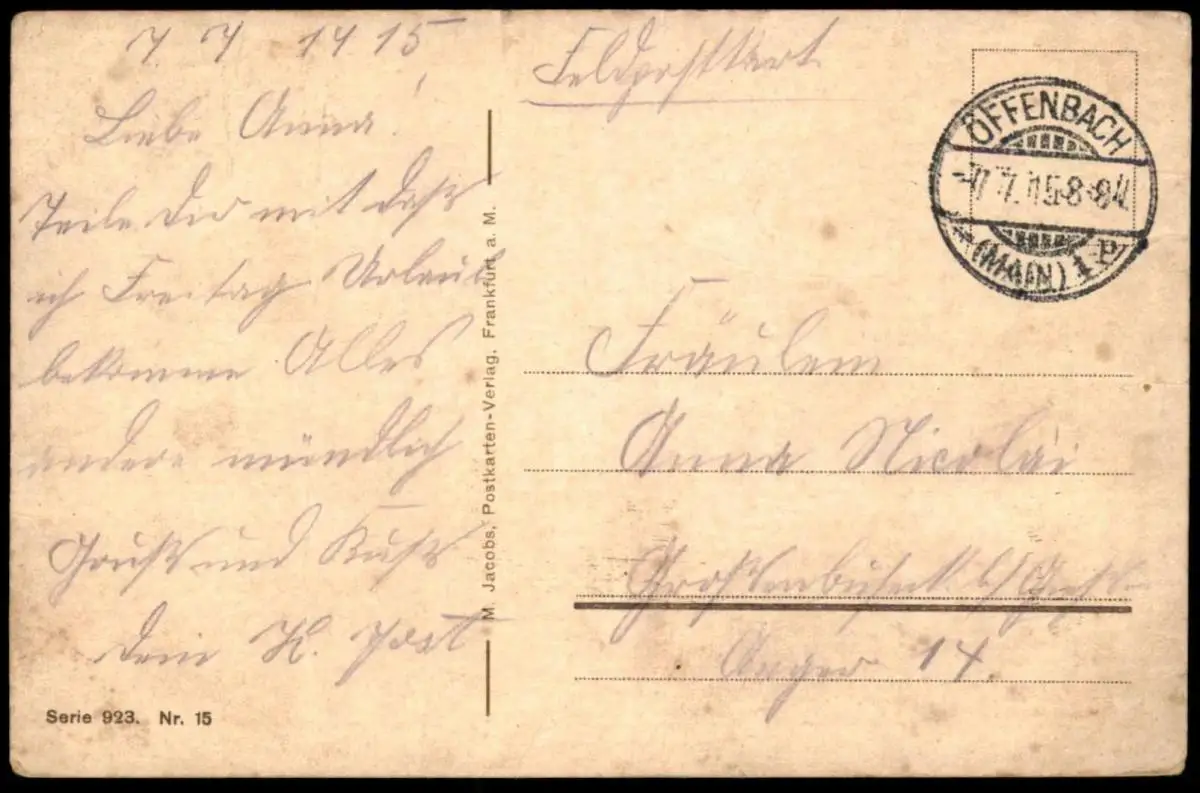 7. 7. 1915
Liebe Anna!
Teile dir mit daß
ich Freitag Urlaub
bekomme Alles
andere mündlich
Gruß und Kuß
dein K. Jost
Serie 923. Nr. 15
M. Jacobs, Postkarten-Verlag, Frankfurt a. M.
Feldpostkart
OFFENBACH
7.15 8-9
(MAIN) 1
Fräulein
Anna Nicolai
Großenbuseck b/
Anger 14.